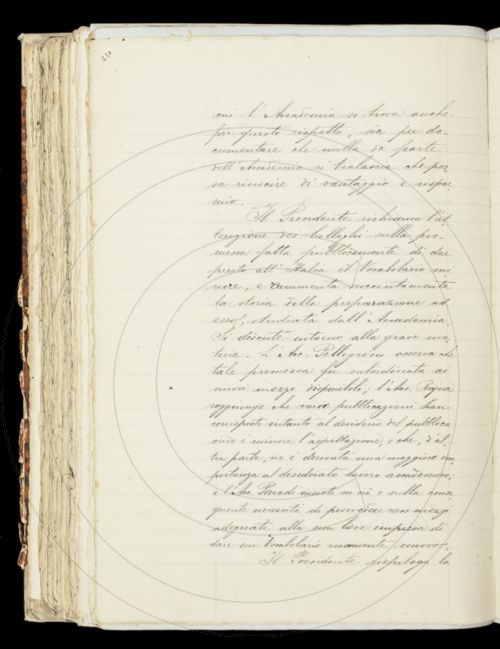 230
cui l'Accademia si trova anche
per questo rispetto, sia per do-
cumentare che nulla da parte
dell'Accademia si tralascia che pos
sa riuscire di vantaggio e rispar
mio.
Il Presidente richiama l'at
tenzione dei Colleghi sulla pro-
messa fatta pubblicamente di dar
presto all'Italia il Vocabolario mi
nore, e rammenta succintamente
la storia della preparazione ad
esso, studiata dall'Accademia.
Si discute intorno alla grave ma
teria. L'Acc. Pellegrini osserva che
tale promessa fu subordinata ai
nuovi mezzi disponibili; l'Acc. Rajna
soggiunge che varie pubblicazioni han
corrisposto intanto al desiderio del pubblico
onde è minore l'aspettazione; e che, d'al
tra parte, ne è derivata una maggiore im
portanza al desiderato lavoro accademico;
e l'Acc. Parodi insiste su ciò e sulla conse
guente necessità di provvedere con mezzi
adeguati alla non lieve impresa di
dare un Vocabolario veramente nuovo.
Il Presidente riepiloga la